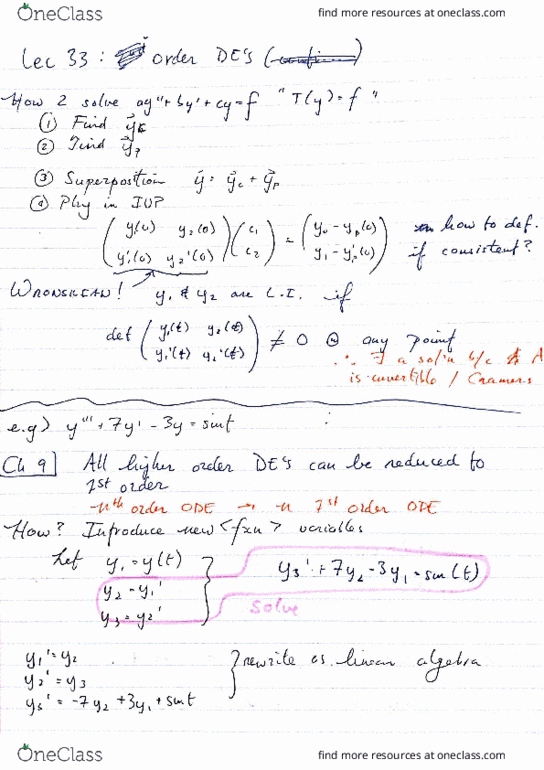 OneClass find more resources at oneclass.com
Lec 33: order DE's
How 2 solve ay" + by' + cy = f "T(y) = f"
① Find y⃗c
② Find y⃗p
③ Superposition y⃗ = y⃗c + y⃗p
④ Plug in IVP
(y₁(0) y₂(0)) (c₁) = (y₀ - yp(0)) how to def.
(y₁'(0) y₂'(0)) (c₂) (y₁ - yp'(0)) if consistent?
WRONSKIAN! y₁ & y₂ are L.I. if
det (y₁(t) y₂(t)) ≠ 0 @ any point
(y₁'(t) y₂'(t)) ∴ ∃ a sol'n b/c A
is invertible / Cramers
e.g) y''' + 7y' - 3y = sint
Ch 9 All higher order DE's can be reduced to
1st order
nth order ODE → n 1st order ODE
How? Introduce new <fxn> variables
Let y₁ = y(t)
y₂ = y₁' y₃' + 7y₂ - 3y₁ = sin(t)
y₃ = y₂' solve
y₁' = y₂
y₂' = y₃ rewrite as linear algebra
y₃' = -7y₂ + 3y₁ + sint
OneClass find more resources at oneclass.com